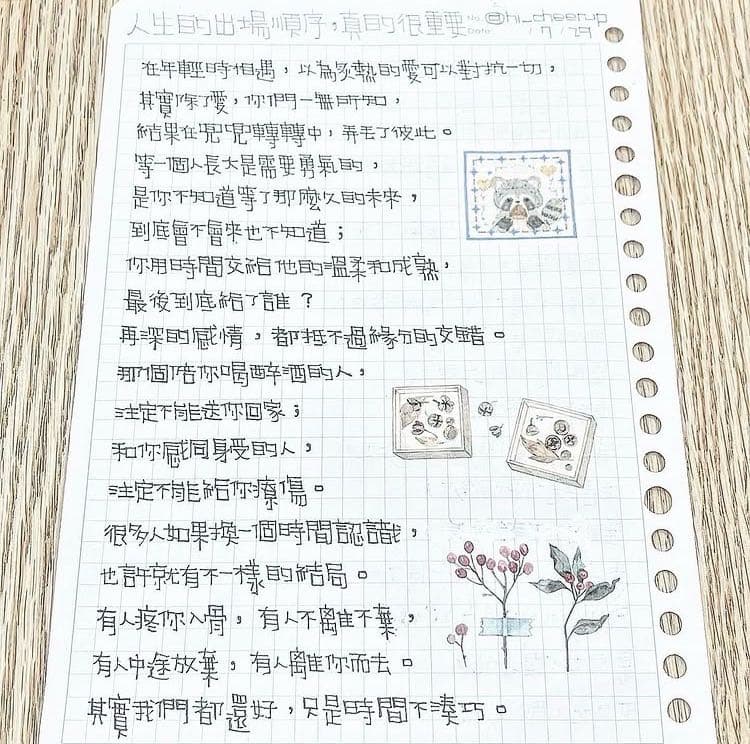 人生的出場順序，真的很重要 No. @hi_cheerup
Date. 17/29
在年輕時相遇，以為炙熱的愛可以對抗一切，
其實除了愛，你們一無所知，
結果在兜兜轉轉中，弄丟了彼此。
等一個人長大是需要勇氣的，
是你不知道等了那麼久的未來，
到底會不會來也不知道；
你用時間交給他的溫柔和成熟，
最後到底給了誰？
再深的感情，都抵不過緣分的交錯。
那個陪你喝醉酒的人，
注定不能送你回家；
和你感同身受的人，
注定不能給你療傷。
很多人如果換一個時間認識，
也許就有不一樣的結局。
有人疼你入骨，有人不離不棄，
有人中途放棄，有人離你而去。
其實我們都還好，只是時間不湊巧。